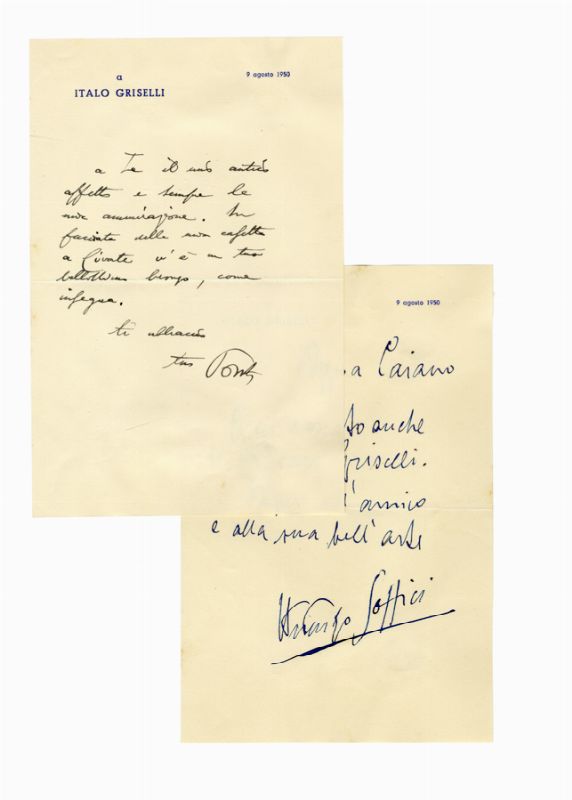 a
ITALO GRISELLI
9 agosto 1950
a Te il mio antico
affetto e sempre la
mia ammirazione. In
facciata della mia casetta
a Civate v'è un tuo
bellissimo bronzo, come
insegna.
ti abbraccio
tuo Ponti
9 agosto 1950
a Caiano
to anche
Griselli.
l'amico
e alla sua bell'arte
Ardengo Soffici